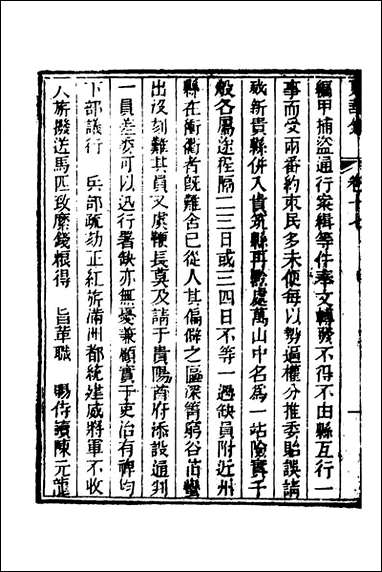 東華錄 卷十七
編甲捕盜通行案緝等件奉文轉發不得不由縣互行一
事而受兩番約束民多未便每以勢逼權分推委貽誤請
裁新貴縣併入貴筑縣再黔處萬山中名為一站險實千
般各屬途程隔二三日或三四日不等一遇缺員附近州
縣在衝衢者既難舍已從人其偏僻之區深箐窮谷苗蠻
出沒刻難其員又虞鞭長莫及請于貴陽等府添設通判
一員差委可以迅行署缺亦無憂兼顧實于吏治有裨均
下部議行 兵部疏劾正紅旂滿洲都統建威將軍不收
人旂撥送馬匹致縻錢糧得 旨革職 賜侍讀陳元龍